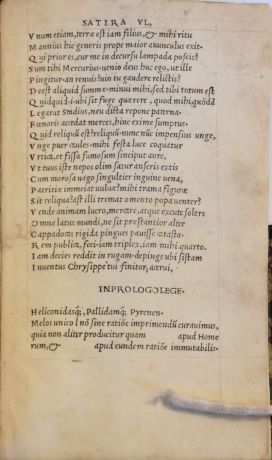 SATIRA VI,
V num etiam, terræ est iam filius, & mihi ritu
M annius hic generis prope maior auunculus exit.
Q ui prior es, cur me in decursu lampada poscis?
S um tibi Mercurius. uenio deus huc ego, ut ille
P ingitur. an renuis? uin tu gaudere relictis?
D eest aliquid summæ. minui mihi, sed tibi totum est
Q uidquid id est. ubi sit fuge quærere, quod mihi quõdã
L egarat Stadius, neu dicta repone paterna.
F œnoris accedat merces, hinc exime sumptus.
Q uid reliquũ est? reliquũ? nunc nũc impensius unge,
V nge puer caules. mihi festa luce coquatur
V rtica, et fissa fumosum sinciput aure,
V t tuus iste nepos olim satur anseris extis
C um morosa uago singultiet inguine uena,
P atritiæ immeiat uuluæ? mihi trama figuræ
S it reliqua? ast illi tremat omento popa uenter?
V ende animam lucro, mercare, atque excute solers
O mne latus mundi, ne sit præstantior alter
C appadoas rigida pingues pauisse catasta.
R em duplica, feci. iam triplex, iam mihi quarto.
I am decies reddit in rugam. depinge ubi sistam
I nuentus Chrysippe tui finitor acerui.
IN PROLOGO LEGE.
Heliconidasq;, Pallidamq; Pyrenen.
Melos unico l nõ sine ratiõe imprimendũ curauimus,
quia non aliter producitur quam apud Home
rum, & apud eundem ratiõe immutabilis.